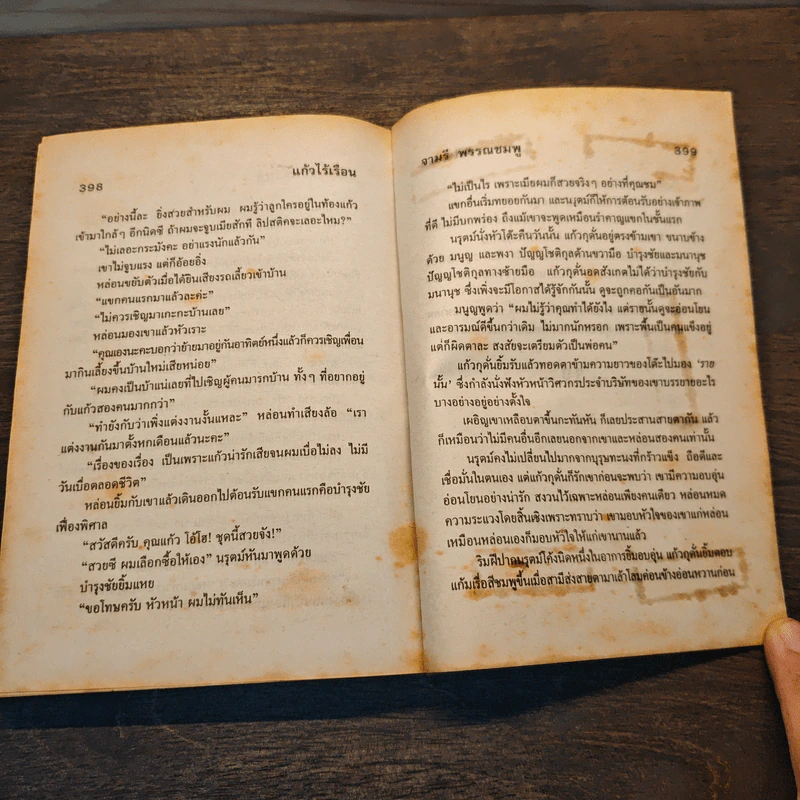 398
แก้วไร้เรือน
“อย่างนี้ละ ยิ่งสวยสำหรับผม ผมรู้ว่าลูกใครอยู่ในท้องแก้ว
เข้ามาใกล้ๆ อีกนิดซี ถ้าผมจะจูบเมียสักที ลิปสติคจะเลอะไหม?”
“ไม่เลอะกระมังคะ อย่าแรงนักแล้วกัน”
เขาไม่จูบแรง แต่ก็อ้อยอิ่ง
หล่อนขยับตัวเมื่อได้ยินเสียงรถเลี้ยวเข้าบ้าน
“แขกคนแรกมาแล้วละค่ะ”
“ไม่ควรเชิญมาเกะกะบ้านเลย”
หล่อนมองเขาแล้วหัวเราะ
“คุณเองนะคะบอกว่าย้ายมาอยู่กันอาทิตย์หนึ่งแล้วก็ควรเชิญเพื่อน
มากินเลี้ยงขึ้นบ้านใหม่เสียหน่อย”
“ผมคงเป็นบ้าแน่เลยที่ไปเชิญผู้คนมารกบ้าน ทั้งๆ ที่อยากอยู่
กับแก้วสองคนมากกว่า”
“ทำยังกับว่าเพิ่งแต่งงานงั้นแหละ” หล่อนทำเสียงล้อ “เรา
แต่งงานกันมาตั้งหกเดือนแล้วนะคะ”
“เรื่องของเรื่อง เป็นเพราะแก้วน่ารักเสียจนผมเบื่อไม่ลง ไม่มี
วันเบื่อตลอดชีวิต”
หล่อนยิ้มกับเขาแล้วเดินออกไปต้อนรับแขกคนแรกคือบำรุงชัย
เฟื่องพิศาล
“สวัสดีครับ คุณแก้ว โอ้โฮ! ชุดนี้สวยจัง!”
“สวยซี ผมเลือกซื้อให้เอง” นรุตม์หันมาพูดด้วย
บำรุงชัยยิ้มแหย
“ขอโทษครับ หัวหน้า ผมไม่ทันเห็น”
จามรี พรรณชมพู
399
“ไม่เป็นไร เพราะเมียผมก็สวยจริงๆ อย่างที่คุณชม”
แขกอื่นเริ่มทยอยกันมา และนรุตม์ก็ให้การต้อนรับอย่างเจ้าภาพ
ที่ดี ไม่มีบกพร่อง ถึงแม้เขาจะพูดเหมือนรำคาญแขกในชั้นแรก
นรุตม์นั่งหัวโต๊ะคืนวันนั้น แก้วกุดั่นอยู่ตรงข้ามเขา ขนาบข้าง
ด้วย มนูญ และพงา ปัญญโชติกุลด้านขวามือ บำรุงชัยและมนานุช
ปัญญโชติกุลทางซ้ายมือ แก้วกุดั่นอดสังเกตไม่ได้ว่าบำรุงชัยกับ
มนานุช ซึ่งเพิ่งจะมีโอกาสได้รู้จักกันนั้น ดูจะถูกคอกันเป็นอันมาก
มนูญพูดว่า “ผมไม่รู้ว่าคุณทำได้ยังไง แต่รายนั้นดูจะอ่อนโยน
และอารมณ์ดีขึ้นกว่าเดิม ไม่มากนักหรอก เพราะพื้นเป็นคนแข็งอยู่
แต่ก็ผิดตาละ สงสัยจะเตรียมตัวเป็นพ่อคน”
แก้วกุดั่นยิ้มรับแล้วทอดตาข้ามความยาวของโต๊ะไปมอง ‘ราย
นั้น’ ซึ่งกำลังนั่งฟังหัวหน้าวิศวกรประจำบริษัทของเขาบรรยายอะไร
บางอย่างอยู่อย่างตั้งใจ
เผอิญเขาเหลือบตาขึ้นกะทันหัน ก็เลยประสานสายตากัน แล้ว
ก็เหมือนว่าไม่มีคนอื่นอีกเลยนอกจากเขาและหล่อนสองคนเท่านั้น
นรุตม์คงไม่เปลี่ยนไปมากจากบุรุษทะนงที่กร้าวแข็ง ถือดีและ
เชื่อมั่นในตนเอง แต่แก้วกุดั่นก็รักเขาก่อนจะพบว่า เขามีความอบอุ่น
อ่อนโยนอย่างน่ารัก สงวนไว้เฉพาะหล่อนเพียงคนเดียว หล่อนหมด
ความระแวงโดยสิ้นเชิงเพราะทราบว่า เขามอบหัวใจของเขาแก่หล่อน
เหมือนหล่อนเองก็มอบหัวใจให้แก่เขานานแล้ว
ริมฝีปากนรุตม์โค้งนิดหนึ่งในอาการยิ้มอบอุ่น แก้วกุดั่นยิ้มตอบ
แก้มเรื่อสีชมพูขึ้นเมื่อสามีส่งสายตามาเล้าโลมค่อนข้างอ่อนหวานก่อน